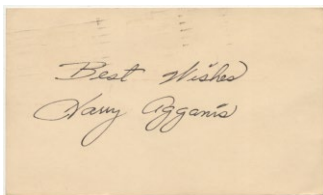 Best Wishes
Harry Agganis